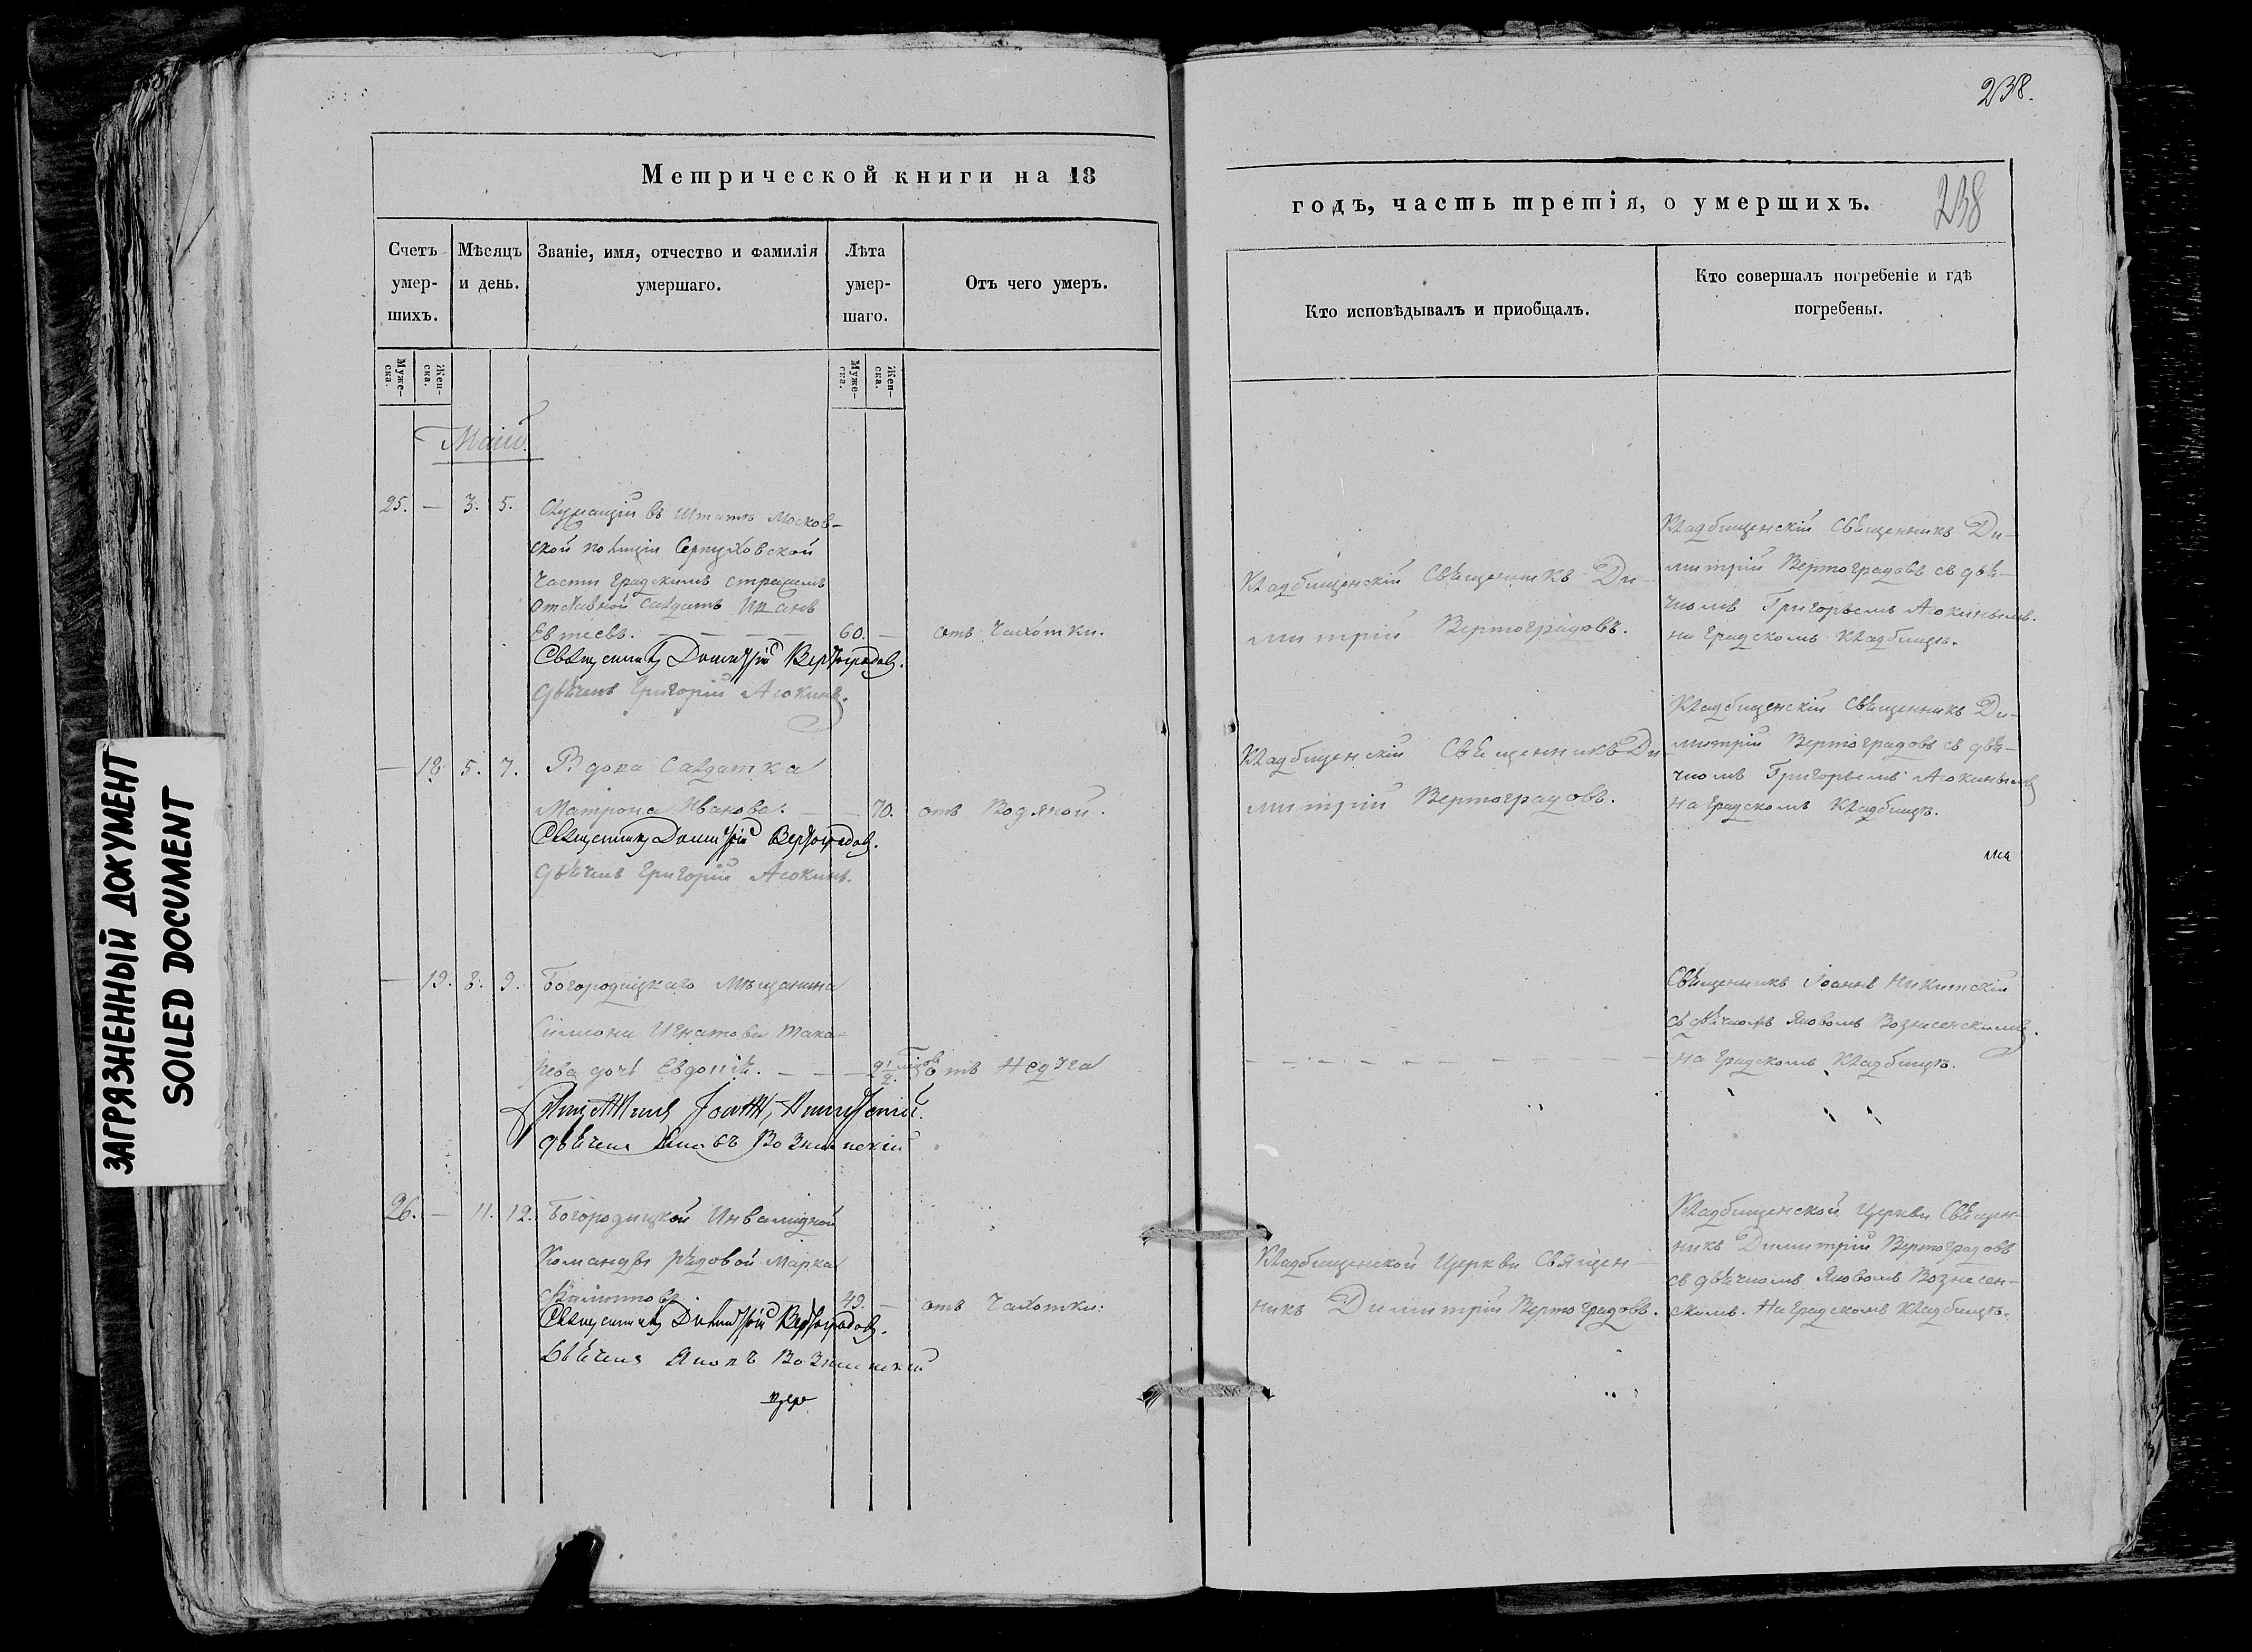 238.
Метрической книги на 18
годъ, часть третія, о умершихъ.
238
Счетъ умер-шихъ.
Мѣсяцъ и день.
Званіе, имя, отчество и фамилія умершаго.
Лѣта умер-шаго.
Отъ чего умеръ.
Кто исповѣдывалъ и приобщалъ.
Кто совершалъ погребеніе и гдѣ погребены.
Муже-ска.
Жен-ска.
Муже-ска.
Жен-ска.
Маій.
25. — 3. 5. Служащій въ Штатѣ Москов-
ской полиціи Серпуховской
части градскимъ стражемъ
отставной салдатъ Иванъ
Евтеевъ. — 60. — отъ Чахотки.
Священникъ Димитрій Вертоградовъ.
дьячекъ Григорій Асокинъ.
Кладбищенскій Священникъ Ди-
митрій Вертоградовъ.
Кладбищенскій Священникъ Ди-
митрій Вертоградовъ съ дья-
чкомъ Григорьемъ Асокинымъ.
на градскомъ кладбищѣ.
— 18 5. 7. Вдова Салдатка
Матрона Иванова. — 70. отъ Водяной.
Священникъ Димитрій Вертоградовъ.
дьячекъ Григорій Асокинъ.
Кладбищенскій Священникъ Ди
митрій Вертоградовъ.
Кладбищенскій Священникъ Ди-
митрій Вертоградовъ съ дья-
чкомъ Григорьемъ Асокинымъ
на градскомъ кладбищѣ.
— 19. 8. 9. Богородицкаго Мѣщанина
Симиона Игнатова Мака-
рева дочь — 9 1/2. отъ Недуга
дьячекъ Яковъ Вознесенскій
Священникъ Іоаннъ Никитскій
съ дьячкомъ Яковомъ Вознесенскимъ.
на градскомъ кладбищѣ.
26. — 11. 12. Богородицкой Инвалидной
Команды рядовой Марка
49. — отъ Чахотки:
Священникъ Димитрій Вертоградовъ.
Дьячекъ Яковъ Вознесенскій
Кладбищенской Церкви Священ-
никъ Димитрій Вертоградовъ.
Кладбищенской Церкви Священ-
никъ Димитрій Вертоградовъ
съ дьячкомъ Яковомъ Вознесен-
скимъ. На градскомъ кладбищѣ.
ЗАГРЯЗНЕННЫЙ ДОКУМЕНТ
SOILED DOCUMENT